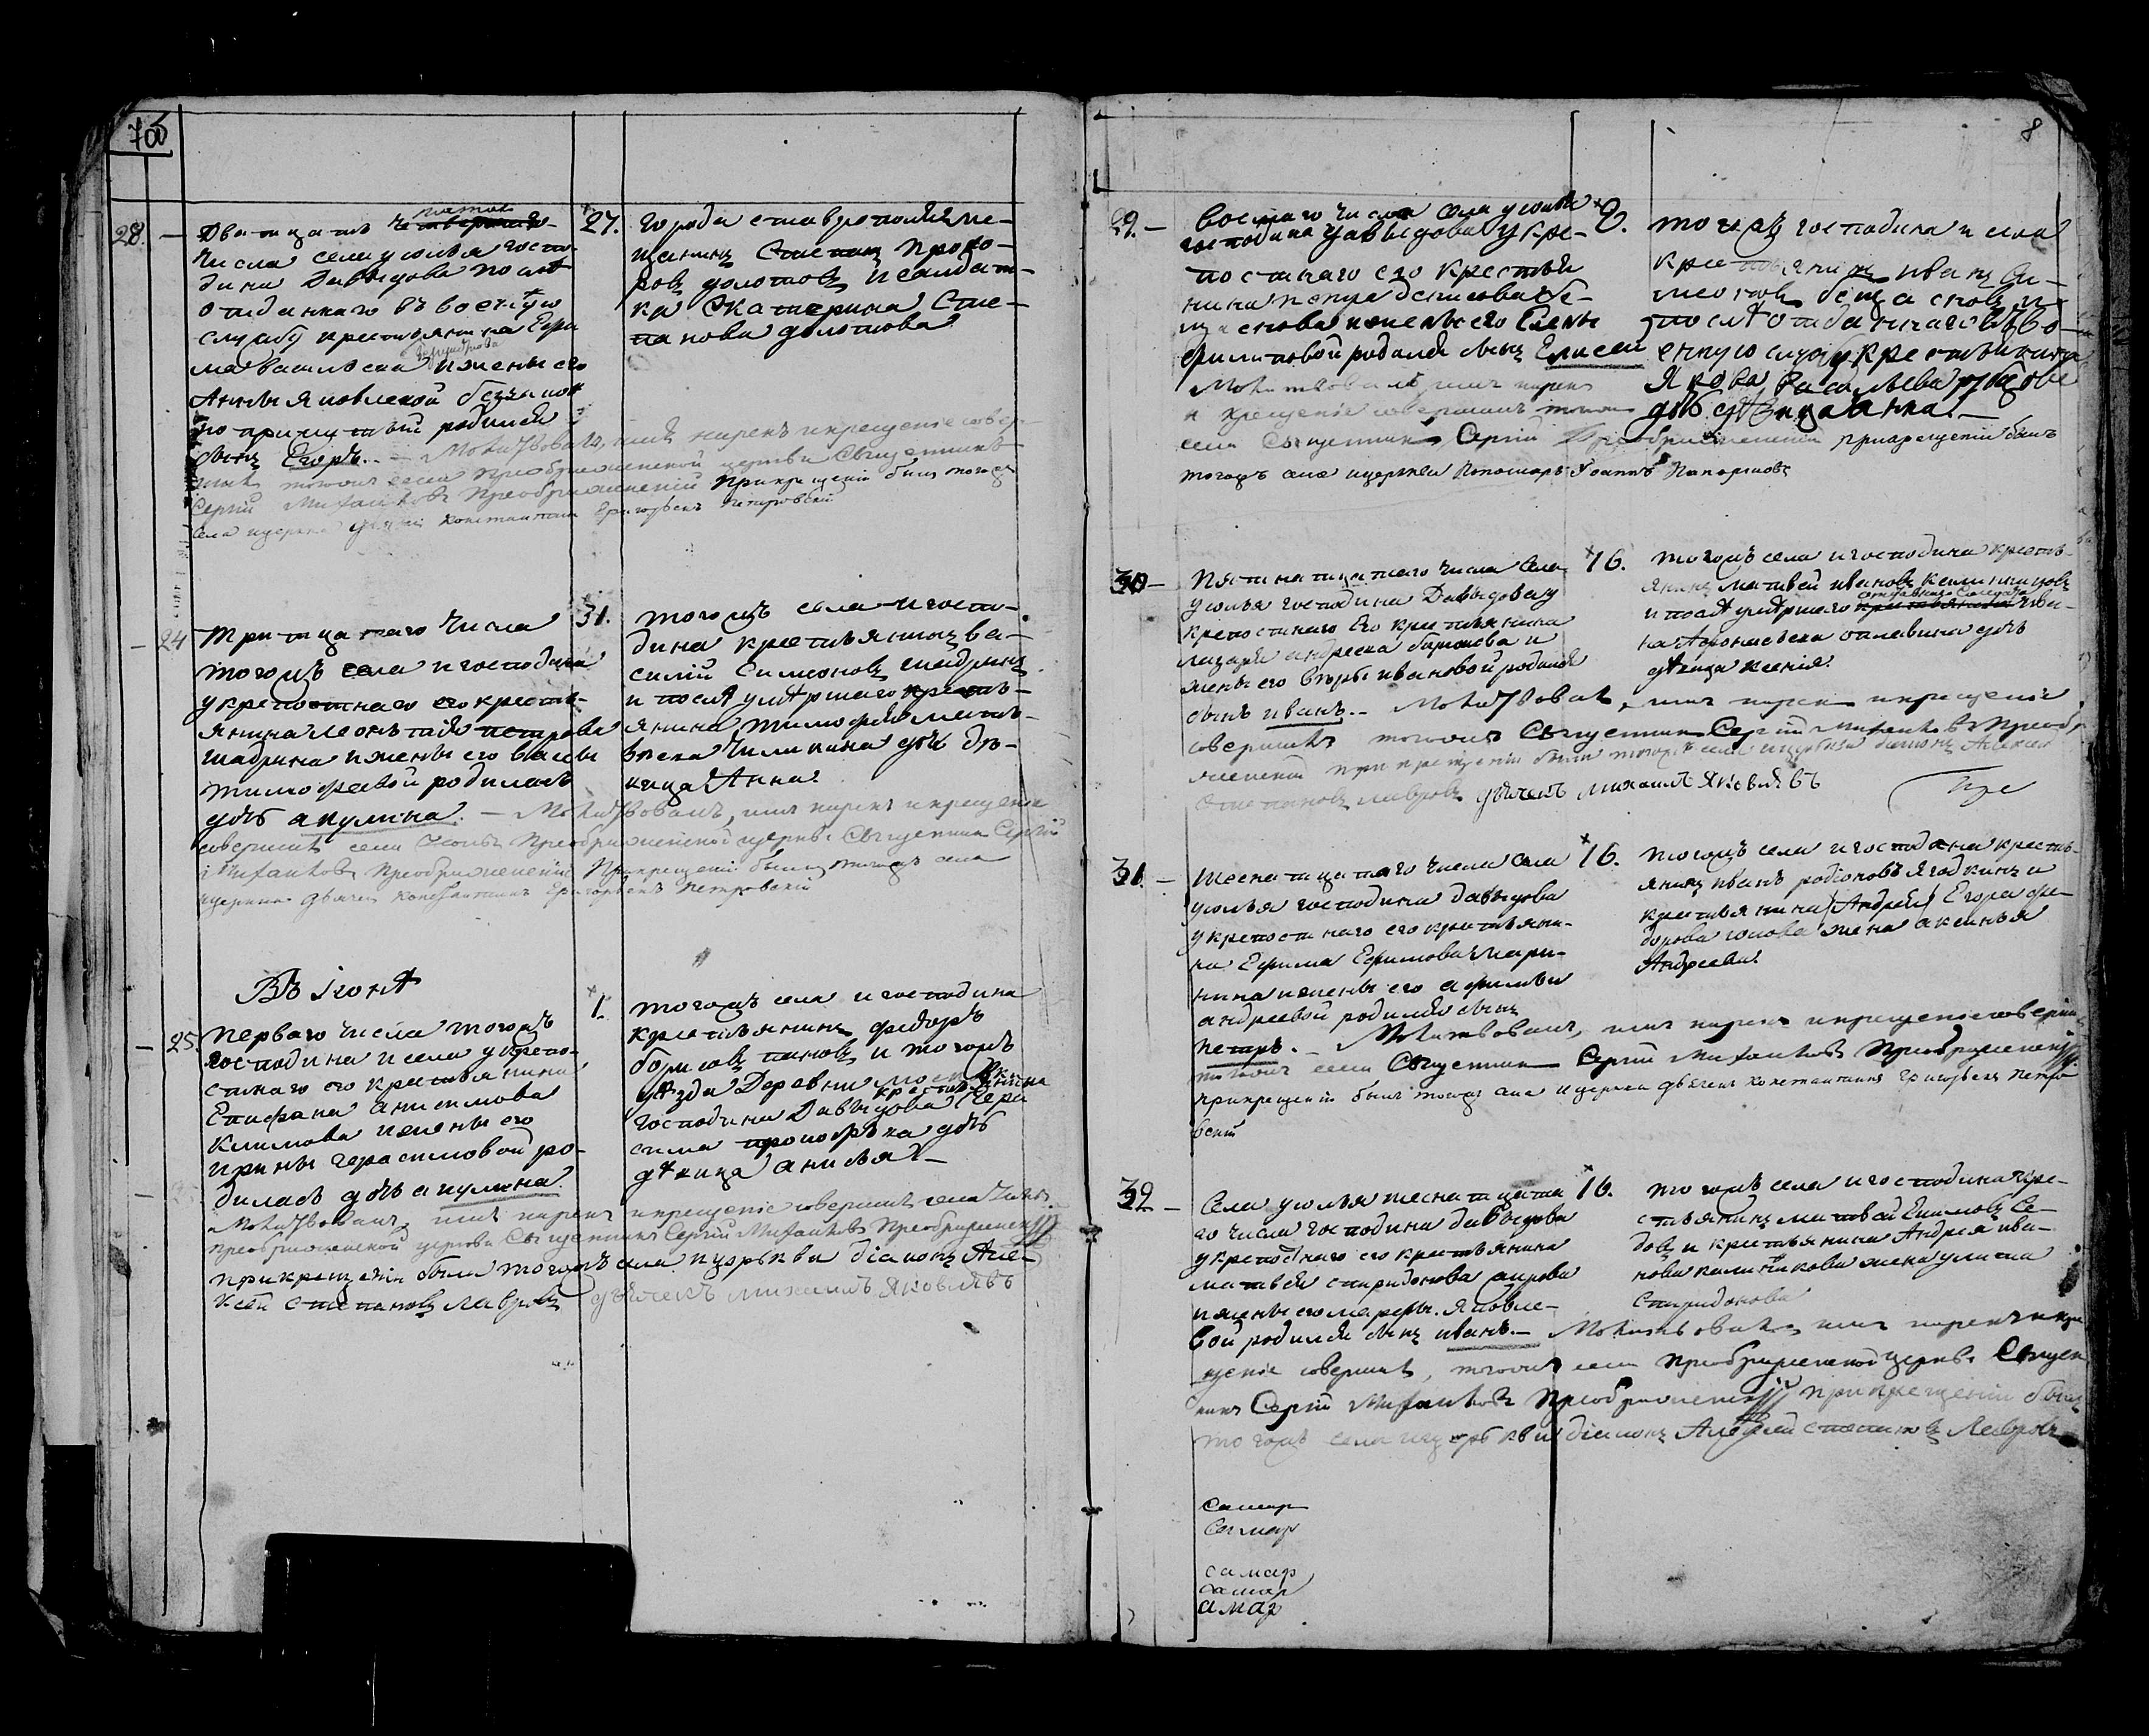 28.
Двадцать четвертаго пятаго
числа села усолья госпо-
дина Давыдова послѣ
отданнаго въ военную
службу крестьянина Ефи
ма Васильева
и жены его
Анны Яковлевой
родился
сынъ Егоръ. — Молитвовалъ, имя нарекъ и крещеніе совер-
шилъ тогожъ села Преображенской церкви Священникъ
Сергій Михайловъ Преображенскій при крещеніи былъ тогожъ
села церкви дьячекъ Константинъ Григорьевъ Петровскій
27.
города ставрополя ме-
щанинъ Степанъ Прохо-
ровъ долотовъ и солдат-
ка Екатерина Сте-
панова долотова
24
Тритцатаго числа
тогожъ села и господина
у крепостнаго его кресть-
янина Леонтія петрова
шадрина и жены его
тимофеевой родилась
дочь акулина. — Молитвовалъ, имя нарекъ и крещеніе
совершилъ села Усолья Преображенской церкви Священникъ Сергій
Михайловъ Преображенскій При крещеніи былъ тогожъ села
церкви дьячекъ Константинъ Григорьевъ Петровскій
31.
тогожъ села и госпо-
дина крестьянинъ ва-
силій Симеоновъ шадринъ
и послѣ умѣршаго кресть-
янина тимофея мать-
вѣева чиликина дочь дѣ-
вица Анна.
Въ іюнѣ
25.
Перваго числа тогожъ
господина и села у крепо-
стнаго его крестьянина
Епифана анисимова
Климова и жены его
ирины герасимовой ро-
дилась дочь акулина.
Молитвовалъ, имя нарекъ и крещеніе совершилъ села Усолья
преображенской церкви Священникъ Сергій Михайловъ Преображенскій
при крещеніи были тогожъ села и церькви діаконъ Але-
ксѣй степановъ лавровъ дьячекъ михаилъ Яковлѣвъ
1.
тогожъ села и господина
крестьянинъ федоръ
борисовъ пановъ и тогожъ
уѣзда Деревни
господина Давыдова крестьянина Гера
сима прокофьева дочь
дѣвица анисья —
8
29. —
Восмаго числа села усолья
господина Давыдова у кре-
постнаго его крестьяни
нина петра денисова бе-
щаснова и жены его Елены
филиповой родился сынъ Елисей
Молитвовалъ имя нарекъ
и крещеніе совершилъ тогожъ
села Священникъ Сергій Преображенскій при крещеніи былъ
тогожъ села и церкви Пономарь Іоаннъ
8.
тогожъ господина и села
крестьянинъ иванъ Си-
меоновъ бещасновъ и
послѣ отданнаго въ во-
енную службу крестьянина
Якова Васильева
дочь дѣвица анна. —
30 —
Пятнатцатаго числа села
усолья господина Давыдова у
крепостнаго его крестьянина
лазаря андреева баринова и
жены его ивановой родился
сынъ иванъ. — Молитвовалъ, имя нарекъ и крещеніе
совершилъ тогожъ Священникъ Сергій Михайловъ Преобра
женскій при крещеніи были тогожъ села и церькви діаконъ Алексѣй
Степановъ лавровъ дьячекъ михаилъ Яковлѣвъ
Пре
16.
тогожъ села и господина кресть-
янинъ матвей ивановъ калинниковъ
отставнаго Салдата
и послѣ умѣршаго крестьянина ива-
на Афонасьева дочь
дѣвица ксенія.
31. —
Шеснатцатаго числа села
усолья господина давыдова
у крепостнаго его крестьяни-
на Ефима Ефимова
нина и жены его афимьи
андреевой родился сынъ
Петръ. — Молитвовалъ, имя нарекъ и крещеніе совершилъ
тогожъ села Священникъ Сергій Михайловъ Преображенскій.
при крещеніи былъ тогожъ села и церкви дьячекъ Константинъ Григорьевъ Петро
вскій
16.
тогожъ села и господина кресть-
янинъ иванъ родіоновъ ягодкинъ и
крестьянина (Андрея) Егора фе-
дорова жена аксинья
Андреева.
32 —
Села усолья шеснатцата
го числа господина давыдова
у крепостнаго его крестьянина
матвея спиридонова
и жены его марфы яковле-
вой родился сынъ иванъ. — Молитвовалъ имя нарекъ и кре
щеніе совершилъ, тогожъ села Преображенской церкви Священ
никъ Сергій Михайловъ Преображенскій при крещеніи былъ
тогожъ села и церькви діаконъ Алексѣй степановъ Лавровъ
16.
тогожъ села и господина кре-
стьянинъ матвей Се-
довъ и крестьянина Андрея ива-
нова калинникова жена улита
Спиридонова
самар
Самар
самар
самар
амар